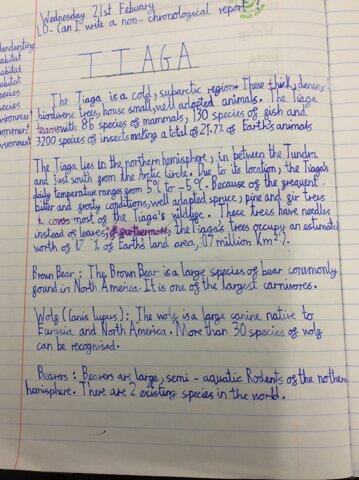 Wednesday 21st Febuary
LO - Can I write a non-chronological report
TIAGA
Handwriting
habitat
habitat
habitat
species
species
environment
environment
environment
The Tiaga is a cold, subarctic region. These thick, dense,
biodiverse trees, house small, well adapted animals. The Tiaga
teams with 86 species of mammals, 130 species of fish and
3200 species of insects making a total of 21.77% of Earth's animals
The Tiaga lies in the northern hemisphere, in between the Tundra
and just south from the Arctic circle. Due to its location, the Tiaga's
daily temperature ranges from 5°c to -5°c. Because of the frequent
bitter and frosty conditions, well adapted spruce, pine and fir treys
covers most of the Tiaga's wildlife. These trees have needles
instead of leaves; furthermore, the Tiaga's trees occupy an estimated
worth of 17 % of Earth's land area, (17 million Km²).
Brown Bear: The Brown Bear is a large species of bear commonly
found in North America. It is one of the largest carnivores.
Wolf (Canis lupus): The wolf is a large canine native to
Eurasia and North America. More than 30 species of wolf
can be recognised.
Beavers: Beavers are large, semi-aquatic Rodents of the nothern
hemisphere. There are 2 existing species in the world.